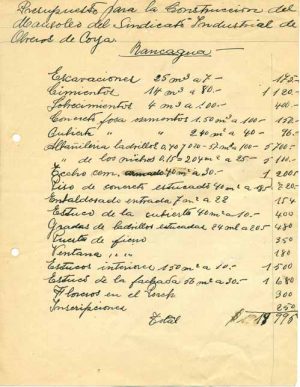 Presupuesto para la Construccion del
Mausoleo del Sindicato Industrial de
Obreros de Coya.
Rancagua
Escavaciones 25 m3 a 7.- 175.-
Cimientos 14 m3 a 80.- 1120.-
Sobrecimientos 4 m3 a 100.- 400.-
Concreto fosa a 100.- 150.-
Cubierta " " 240 m a 40.- 96.-
Albañileria ladrillos 0,40 57 m2 a 100.- 5700.-
" de los nichos 0.15 204 m2 a 25.- 5100.-
Techo con 40 m2 a 30.- 1200.-
Piso de concreto estucado 40 m2 a
Enbaldosado entrada 7 m2 a 22 154
Estuco de la cubierta 40 m a 10.- 400
Gradas de ladrillos estucadas 24 ml a 20.- 480
Puerta de fierro 350
Ventana " " 180
Estucos interiores 150 m2 a 10.- 1500
Estuco de la fachada 56 m2 a 30.- 1680
Floreros en el 300
Inscripciones 250
Total